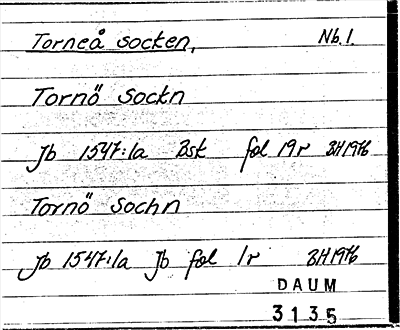 Torneå socken, Nb.l.
Tornö Sockn
Jb 1547:1a Bsk fol 19r BH1976
Tornö Sochn
Jb 1547:1a Jb fol 1r BH1976
DAUM
3135